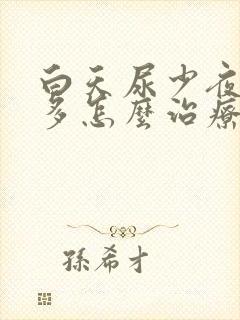 白天尿少夜
多怎麼治療
孫希才